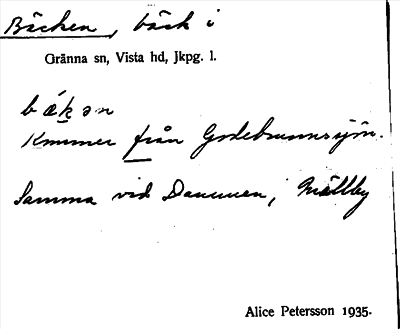 Bäcken, bäck i
Gränna sn, Vista hd, Jkpg. l.
bǽkən
Kommer från Godebrunnsjön.
Samma vid Dammen, Mällby
Alice Petersson 1935.